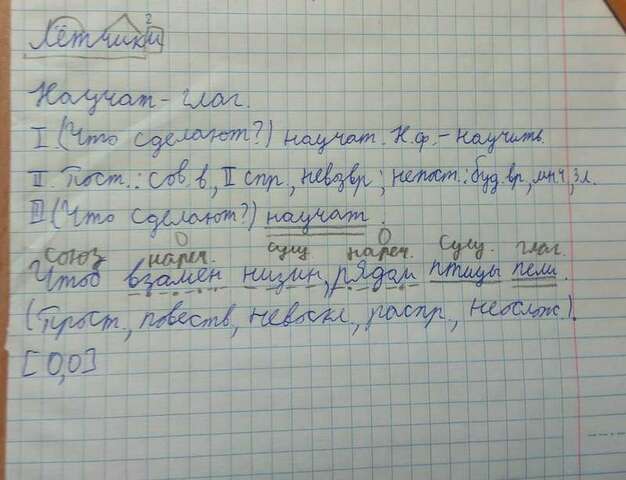 Лётчики 2
Научат - глаг.
I (Что сделают?) научат. Н.ф. - научить.
II. Пост.: сов. в, II спр, невозвр; непост.: буд. вр, мн ч, 3 л.
III (Что сделают?) научат.
союз нареч. сущ нареч. сущ. глаг.
Чтоб взамен низин, рядом птицы пели.
(Прост., повеств, невоскл, распр., неослож.).
[О,О]